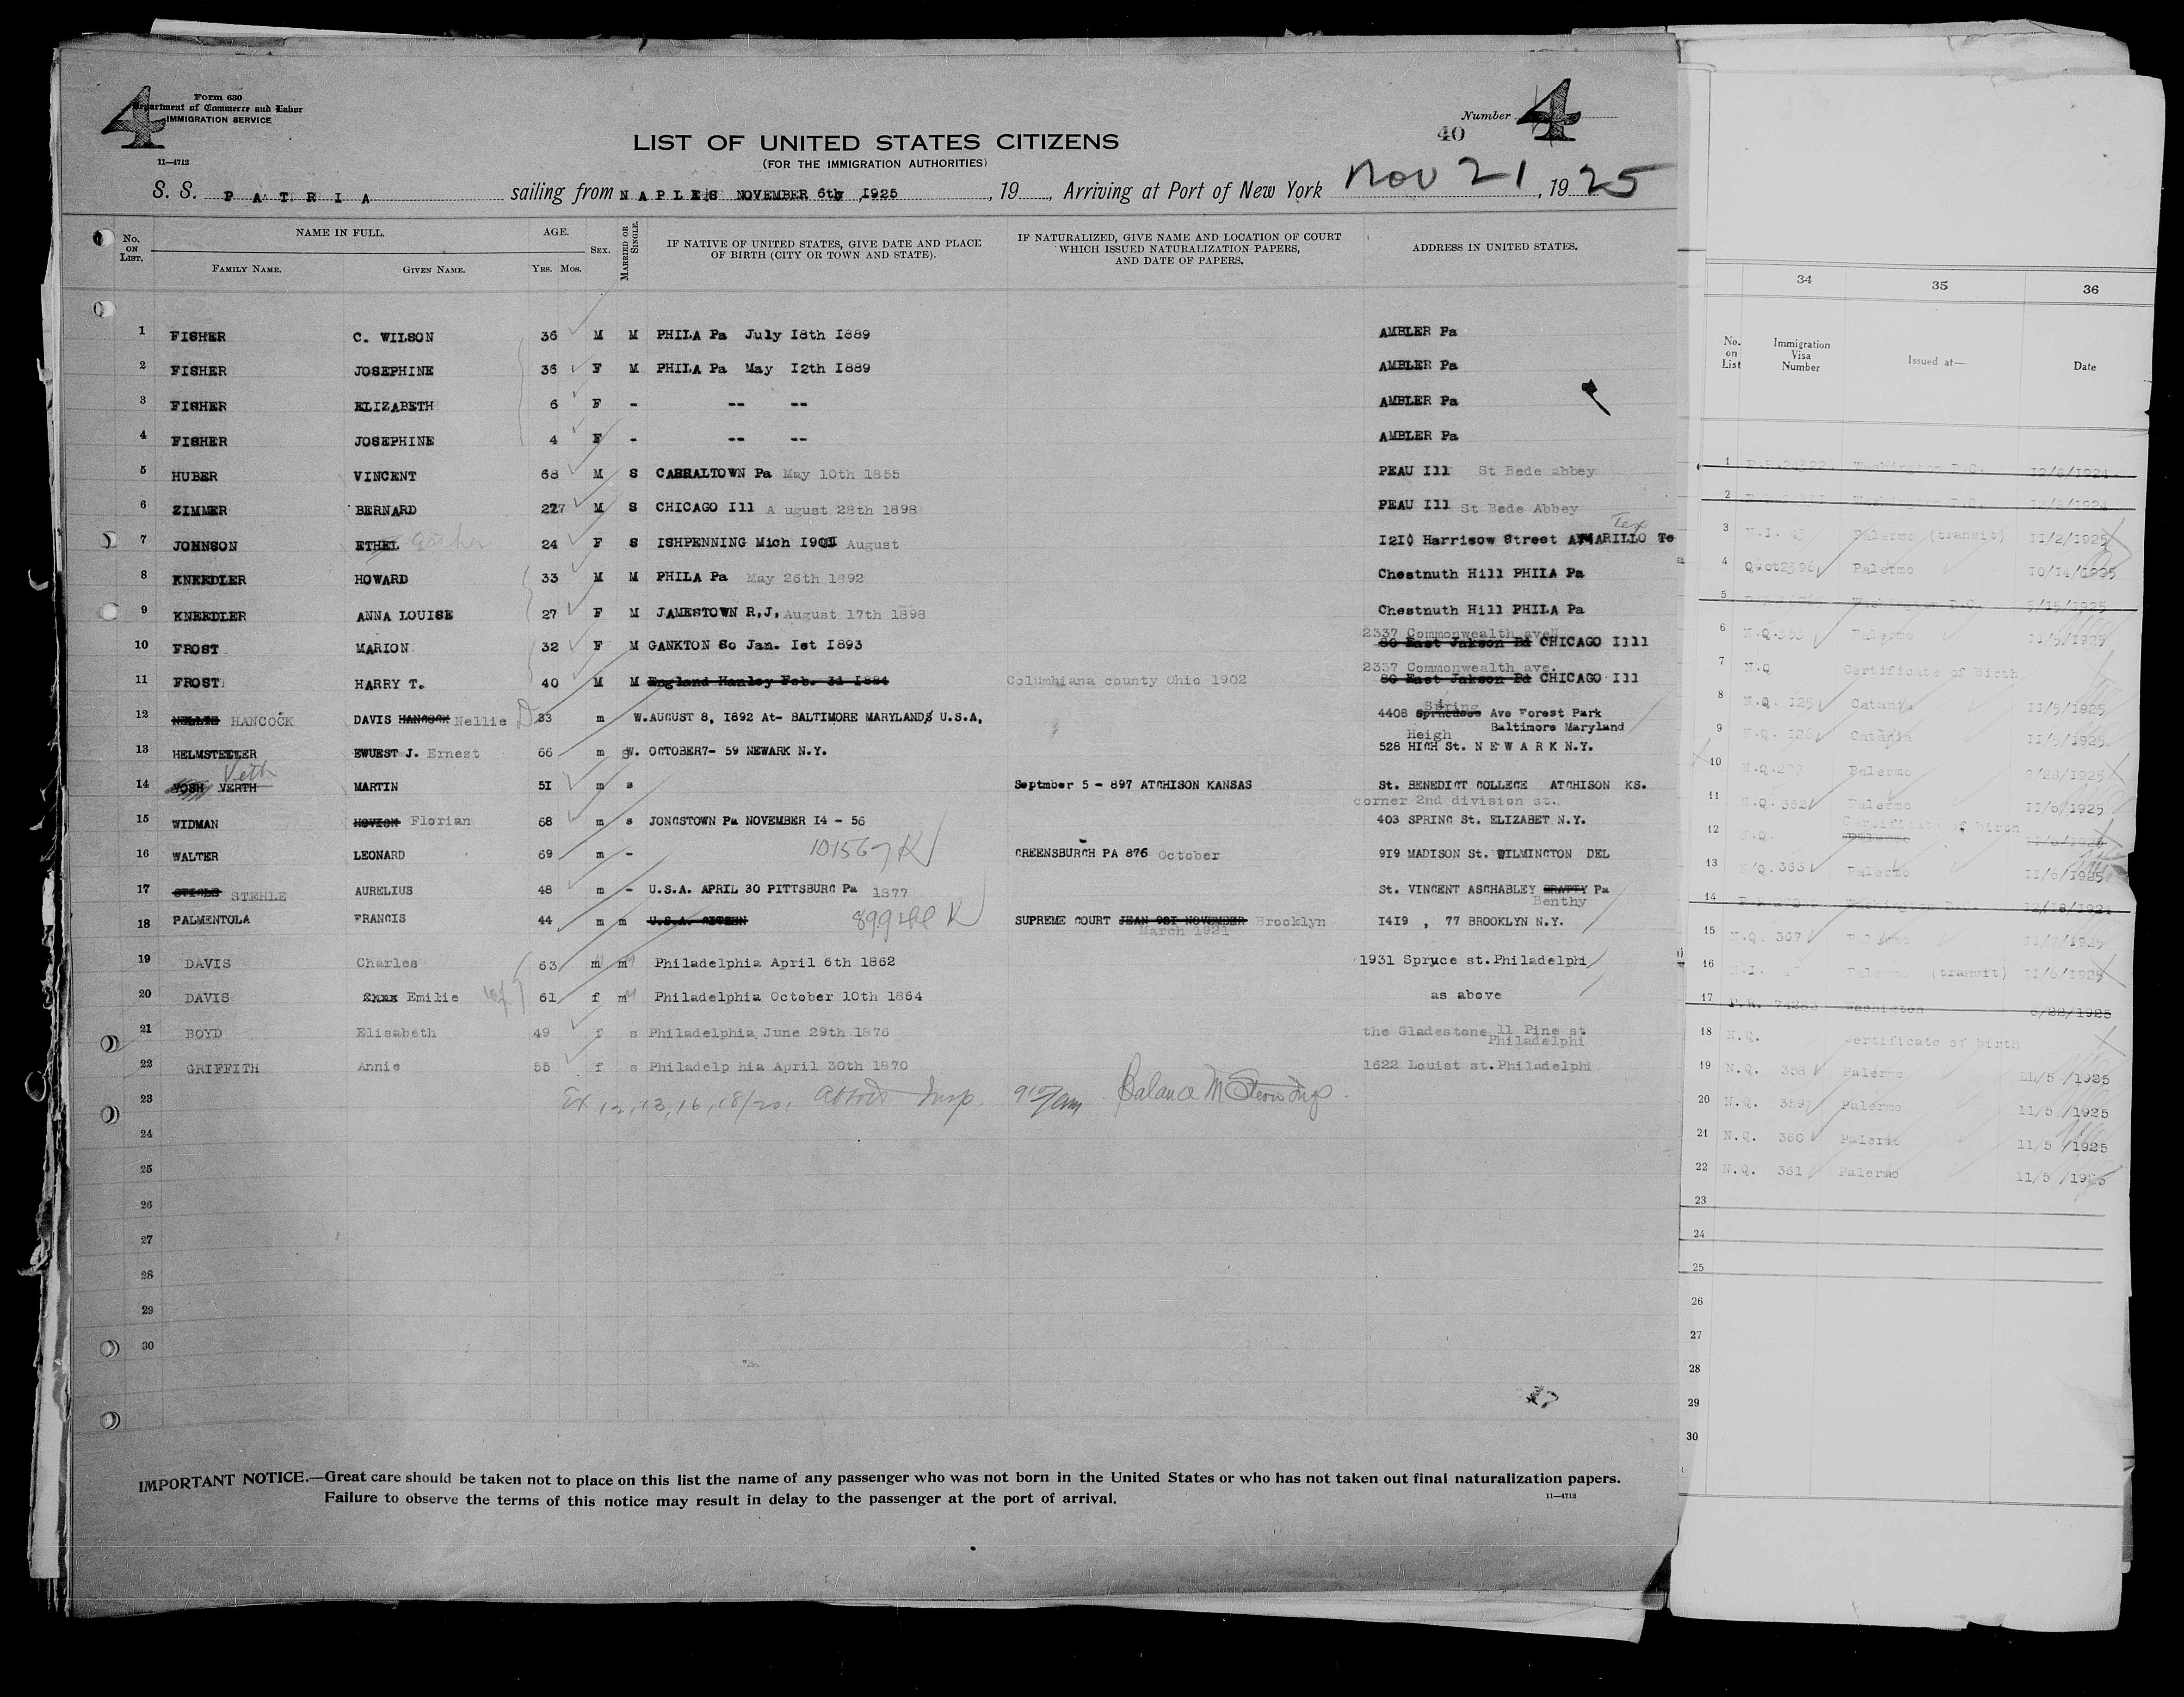 4
Form 630
Department of Commerce and Labor
IMMIGRATION SERVICE
11—4712
LIST OF UNITED STATES CITIZENS
(FOR THE IMMIGRATION AUTHORITIES)
Number 4
40
S. S. PATRIA sailing from NAPLES NOVEMBER 6th, 1925, 19, Arriving at Port of New York Nov 21, 1925
No. ON LIST.
NAME IN FULL.
FAMILY NAME. GIVEN NAME.
AGE.
Yrs. Mos.
SEX.
MARRIED OR SINGLE.
IF NATIVE OF UNITED STATES, GIVE DATE AND PLACE OF BIRTH (CITY OR TOWN AND STATE).
IF NATURALIZED, GIVE NAME AND LOCATION OF COURT WHICH ISSUED NATURALIZATION PAPERS, AND DATE OF PAPERS.
ADDRESS IN UNITED STATES.
1 FISHER C. WILSON 36 M M PHILA Pa July I8th I889 AMBLER Pa
2 FISHER JOSEPHINE 36 F M PHILA Pa May I2th I889 AMBLER Pa
3 FISHER ELIZABETH 6 F - -- -- AMBLER Pa
4 FISHER JOSEPHINE 4 F - -- -- AMBLER Pa
5 HUBER VINCENT 68 M S CARRALTOWN Pa May 10th 1855 PEAU Ill St Bede abbey
6 ZIMMER BERNARD 27 M S CHICAGO Ill August 28th 1898 PEAU Ill St Bede Abbey
7 JOHNSON ETHEL 24 F S ISHPENNING Mich I90I August I2I0 Harrisow Street AMARILLO Te Tex
8 KNEEDLER HOWARD 33 M M PHILA Pa May 26th 1892 Chestnuth Hill PHILA Pa
9 KNEEDLER ANNA LOUISE 27 F M JAMESTOWN R,J, August 17th 1898 Chestnuth Hill PHILA Pa
10 FROST MARION 32 F M GANKTON So Jan. Ist I893 2337 Commonwealth ave 80 East Jakson Bd CHICAGO Illl
11 FROST HARRY T. 40 M M England Hanley Feb. 3d I884 Columbiana county Ohio 1902 2337 Commonwealth ave. 80 East Jakson Bd CHICAGO Ill
12 NELLIS HANCOCK DAVIS HANCOCK Nellie 33 m W. AUGUST 8, I892 At- BALTIMORE MARYLAND U.S.A, 4408 Spring Ave Forest Park Baltimore Maryland
13 HELMSTETTER EWUEST J. Ernest 66 m W. OCTOBER7- 59 NEWARK N.Y. Heigh 528 HIGH St. NEWARK N.Y.
14 VOSH VERTH Veth MARTIN 5I m s Septmber 5 - 897 ATCHISON KANSAS St. BENEDICT COLLEGE ATCHISON KS.
15 WIDMAN Florian 68 m s JONGSTOWN Pa NOVEMBER I4 - 56 corner 2nd division st. 403 SPRING St. ELIZABET N.Y.
16 WALTER LEONARD 69 m - 101567 K GREENSBURGH PA 876 October 9I9 MADISON St. WILMINGTON DEL
17 STEHLE AURELIUS 48 m - U.S.A. APRIL 30 PITTSBURG Pa 1877 St. VINCENT ASCHABLEY BRATTY Pa Benthy
18 PALMENTOLA FRANCIS 44 m m U.S.A. CITZEN SUPREME COURT JEAN 92I NOVEMBER Brooklyn March 1921 I4I9 , 77 BROOKLYN N.Y.
19 DAVIS Charles 63 m m Philadelphia April 6th 1862 1931 Spruce st.Philadelphi
20 DAVIS Emilie 61 f m Philadelphia October 10th 1864 as above
21 BOYD Elisabeth 49 f s Philadelphia June 29th 1876 the Gladestone 11 Pine st Philadelphi
22 GRIFFITH Annie 55 f s Philadelp hia April 30th 1870 1622 Louist st.Philadelphi
23 Ex 12, 13, 16, 18/20, Insp. 9 10/am Balance
24
25
26
27
28
29
30
IMPORTANT NOTICE.—Great care should be taken not to place on this list the name of any passenger who was not born in the United States or who has not taken out final naturalization papers.
Failure to observe the terms of this notice may result in delay to the passenger at the port of arrival.
11—4712
34 35 36
No. on List Immigration Visa Number Issued at— Date
1 Washington D.C. 12/8/1924
2 Washington D.C. 12/8/1924
3 N.I. 43 Palermo (transit) II/2/1925
4 Palermo 10/14/1925
5 Washington D.C.
6 N.Q. Palermo 11/5/1925
7 N.Q Certificate of Birth
8 N.Q. I25 Catania II/5/1925
9 N.Q. I26 Catania II/5/1925
10 N.Q.277 Palermo 9/28/1925
11 N.Q. 362 Palermo II/6/1925
12 N.Q. Certificate of birth
13 N.Q. Palermo II/6/1925
14 Washington 12/18/1924
15 N.Q. 367 Palermo
16 N.I. Palermo (transit) II/6/1925
17 Washington 6/22/1925
18 N.Q. Certificate of birth
19 N.Q. 358 Palermo 11/5 /1925
20 N.Q. 359 Palermo 11/5 /1925
21 N.Q. 360 Palermo 11/5 /1925
22 N.Q. 361 Palermo 11/5 /1925
23
24
25
26
27
28
29
30